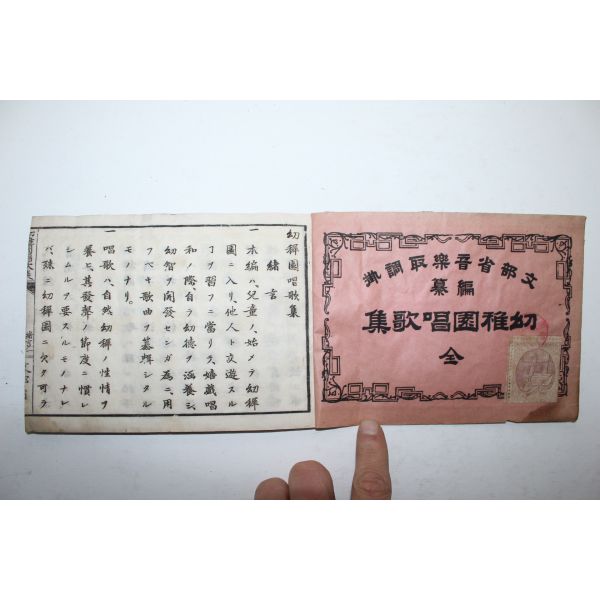 文部省音樂取調掛
編纂
幼稚園唱歌集
全
幼穉園唱歌集
緒言
一 本編ハ、兒童ノ、始メテ幼穉
園ニ入リ、他人ト交遊スル
ヿヲ習フニ當リテ、嬉戲唱
和ノ際、自ラ幼德ヲ涵養シ、
幼智ヲ開發センガ爲ニ、用
フベキ歌曲ヲ纂輯シタル
モノナリ。
一 唱歌ハ、自然幼穉ノ性情ヲ
養ヒ、其發聲ノ節度ニ慣レ
シムルヲ要スルモノナレ
バ、殊ニ幼穉園ニ欠ク可ラ